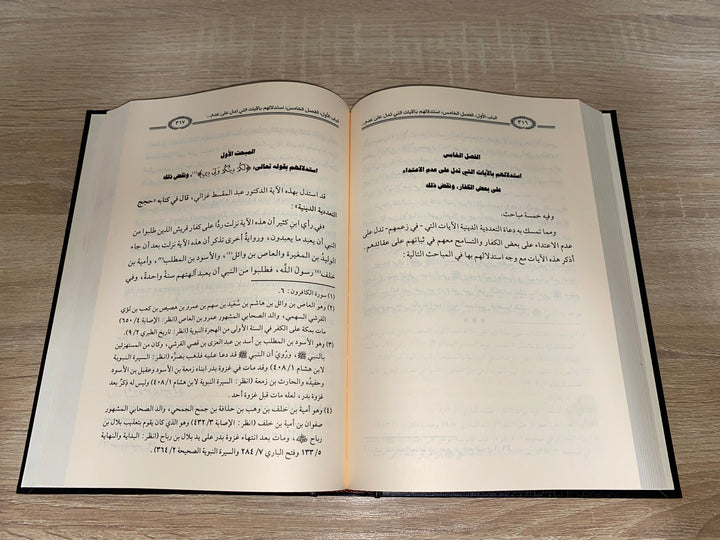 الباب الأول: الفصل الخامس: استدلالهم بالآيات التي تدل على عدم...
٣١٦
الفصل الخامس
استدلالهم بالآيات التي تدل على عدم الاعتداء
على بعض الكفار، ونقض ذلك
وفيه خمسة مباحث.
ومما تمسك به دعاة التعددية الدينية الآيات التي - في زعمهم - تدل على
عدم الاعتداء على بعض الكفار والتسامح معهم في ثباتهم على عقائدهم.
أذكر هذه الآيات مع وجه استدلالهم بها في المباحث التالية:
الباب الأول: الفصل الخامس: استدلالهم بالآيات التي تدل على عدم...
٣١٧
المبحث الأول
استدلالهم بقوله تعالى: ﴿لَكُمْ دِينُكُمْ وَلِيَ دِينِ﴾(١)، ونقض ذلك
قد استدل بهذه الآية الدكتور عبد المقسط غزالي، قال في كتابه «حجج
التعددية الدينية»:
«في رأي ابن كثير أن هذه الآية نزلت ردًّا على كفار قريش الذين طلبوا من
النبي أن يعبد ما يعبدون، ورواية أخرى تذكر أن هذه الآية نزلت بعد أن جاء
الوليد بن المغيرة والعاص بن وائل(٢)، والأسود بن المطلب(٣)، وأمية بن
خلف(٤) رسولَ اللَّه، فطلبوا من النبي أن يعبد آلهتهم سنة واحدة، وفي
(١) سورة الكافرون: ٦.
(٢) وهو العاص بن وائل بن هاشم بن سُعَيد بن سهم بن عمرو بن هصيص بن كعب بن لؤي
القرشي السهمي، والد الصحابي المشهور عمرو بن العاص (انظر: الإصابة ٤/ ٦٥٠)
مات بمكة على الكفر في السنة الأولى من الهجرة النبوية (انظر: تاريخ الطبري ٢/ ٩).
(٣) وهو الأسود بن المطلب بن أسد بن عبد العزى بن قصي القرشي، وكان من المستهزئين
بالنبي ﷺ، ورُوي أن النبي ﷺ قد دعا عليه فذهب بصرُه (انظر: السيرة النبوية
لابن هشام ١/ ٤٠٨) وقد مات في غزوة بدر ابناه زمعة بن الأسود وعقيل بن الأسود
وحفيدُه والحارث بن زمعة (انظر: السيرة النبوية لابن هشام ١/ ٤٠٨) وليس له ذِكرٌ بعد
غزوة بدر، لعله مات قبل غزوة أحد.
(٤) وهو أمية بن خلف بن وهب بن حذافة بن جمح الجمحي، والد الصحابي المشهور
صفوان بن أمية بن خلف (انظر: الإصابة ٣/ ٤٣٢) وهو الذي كان يقوم بتعذيب بلال بن
رباح، ومات بعد انتهاء غزوة بدر على يد بلال بن رباح (انظر: البداية والنهاية
٥/ ١٣٣ وفتح الباري ٧/ ٢٨٤ والسيرة النبوية الصحيحة ٢/ ٣٦٤).